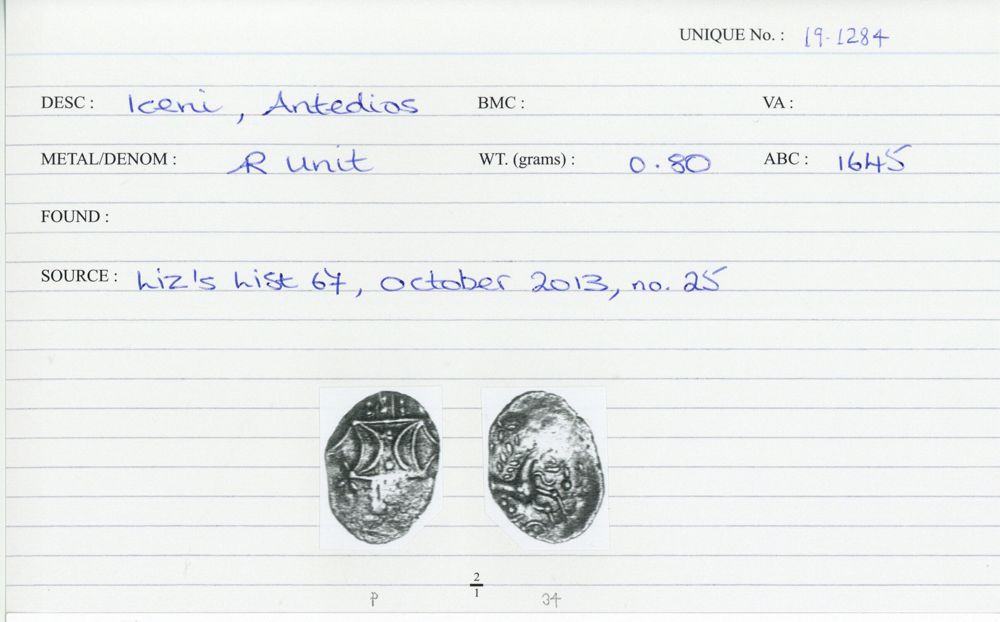 UNIQUE No. : 19-1284
DESC : Iceni, Antedios BMC : VA :
METAL/DENOM : R unit WT. (grams) : 0.80 ABC : 1645
FOUND :
SOURCE : Liz's List 67, October 2013, no. 25
2
1
P 34